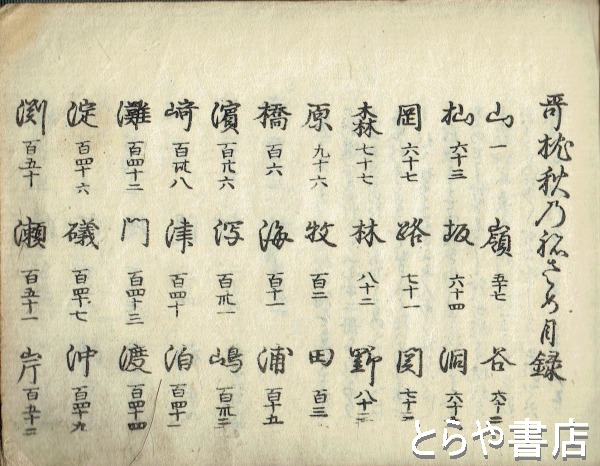 哥枕秋乃祢さめ目録
山 一 嶺 五十七 谷 六十二
杣 六十三 坂 六十四 洞 六十五
岡 六十七 路 七十一 関 七十三
森 七十七 林 八十二 野 八十三
原 九十六 牧 百二 田 百三
橋 百六 海 百十一 浦 百十五
濱 百廿六 泻 百卅一 嶋 百卅三
崎 百卅八 津 百四十 泊 百四十一
灘 百四十二 門 百四十三 渡 百四十四
淀 百四十六 礒 百四十七 沖 百四十九
渕 百五十 瀬 百五十一 岸 百五十二
とらや書店